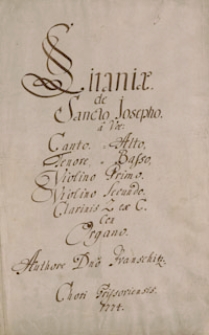 Litaniæ.
de
Sancto Josepho.
â Voc:
Canto. Alto,
Tenore. Basso,
Violino Primo.
Violino Secundo.
Clarinis 2 ex C.
con
Organo.
Authore Dno
Chori